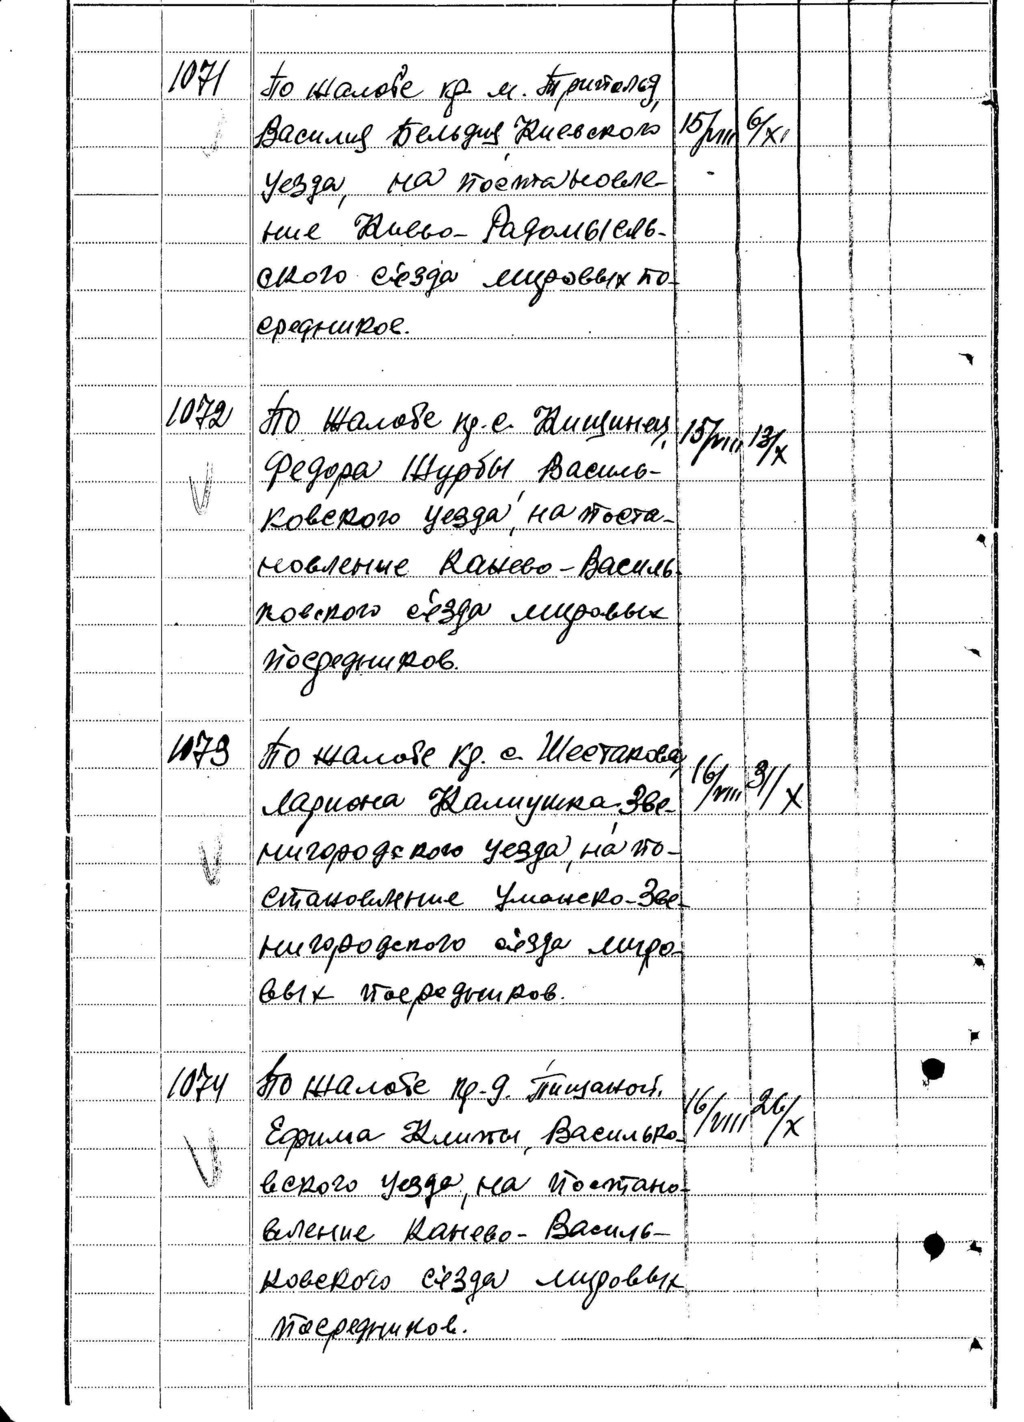 1071 По жалобе кр. м. Триполья,
Василия Бельдия Киевского 15/VIII 6/XI
уезда, на постановле-
ние Киево-Радомысль-
ского съезда мировых по-
средников.
1072 По жалобе кр. с. Кищинец, 15/VIII 13/X
Федора Шурбы Василь-
ковского уезда, на поста-
новление Канево-Василь-
ковского съезда мировых
посредников.
1073 По жалобе кр. с. Шестакова, 16/VIII 31/X
Лариона Калиушка, Зве-
нигородского уезда, на по-
становление Уманско-Зве-
нигородского съезда миро-
вых посредников.
1074 По жалобе кр. д. Пищаной, 16/VIII 26/X
Ефима Климы, Василько-
вского уезда, на постано-
вление Канево-Василь-
ковского съезда мировых
посредников.